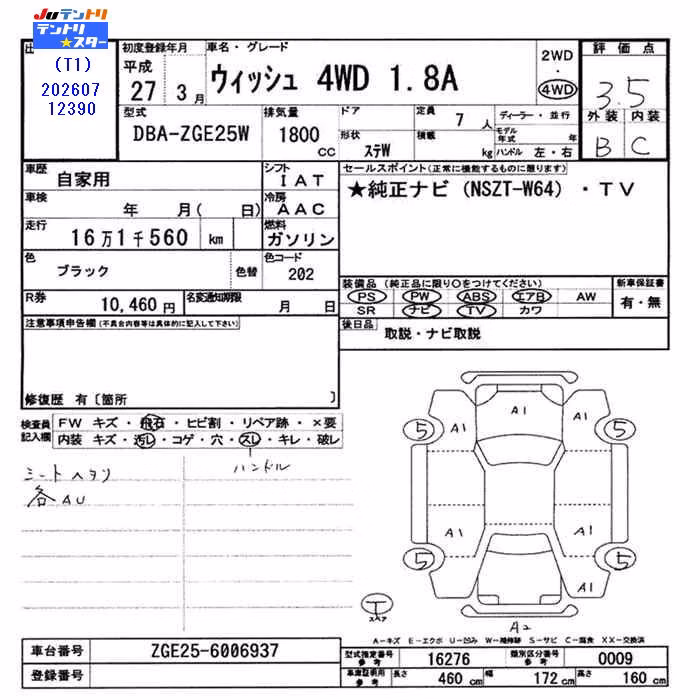 JUテントリ
テントリ★スター
(T1)
202607
12390
初度登録年月
平成
27 3月
車名・グレード
ウィッシュ 4WD 1.8A
2WD
・
4WD
評価点
3.5
外装 内装
B C
型式
DBA-ZGE25W
排気量
1800
cc
ドア
形状
ステW
定員
7 人
積載
kg
ディーラー・並行
モデル年式 年
ハンドル 左・右
車歴
自家用
シフト
IAT
車検
年 月( 日)
冷房
AAC
走行
16万1千560 km
燃料
ガソリン
色
ブラック
色替
色コード
202
R券
10,460円
名変通知期限
月 日
セールスポイント(正常に機能するものに限ります)
★純正ナビ(NSZT-W64)・TV
装備品(純正品に限り○をつけてください)
PS PW ABS エアB AW
SR ナビ TV カワ
新車保証書
有・無
後日品
取説・ナビ取説
注意事項申告欄(不具合内容等は具体的に記入して下さい)
修復歴 有〔箇所 〕
検査員記入欄
FW キズ・飛石・ヒビ割・リペア跡・×要
内装 キズ・汚レ・コゲ・穴・スレ・キレ・破レ
ハンドル
シートヘタリ
各AU
A1
5 A1 A1 5
A1 A1
5 A1 5
T
スペア
A2
A-キズ E-エクボ U-凹み W-補修跡 S-サビ C-腐食 XX-交換済
車台番号
ZGE25-6006937
登録番号
型式指定番号
参考
16276
類別区分番号
参考
0009
車庫証明用
参考
長さ 460 cm 幅 172 cm 高さ 160 cm